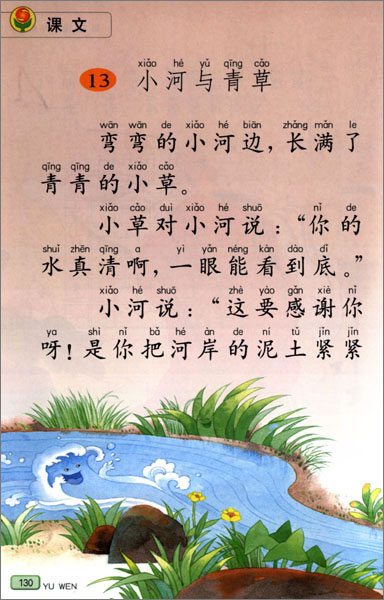 课文
xiǎo hé yǔ qīng cǎo
13 小河与青草
wān wān de xiǎo hé biān zhǎng mǎn le
弯弯的小河边，长满了
qīng qīng de xiǎo cǎo
青青的小草。
xiǎo cǎo duì xiǎo hé shuō nǐ de
小草对小河说：“你的
shuǐ zhēn qīng a yì yǎn néng kàn dào dǐ
水真清啊，一眼能看到底。”
xiǎo hé shuō zhè yào gǎn xiè nǐ
小河说：“这要感谢你
ya shì nǐ bǎ hé àn de ní tǔ jǐn jǐn
呀！是你把河岸的泥土紧紧
130 YU WEN